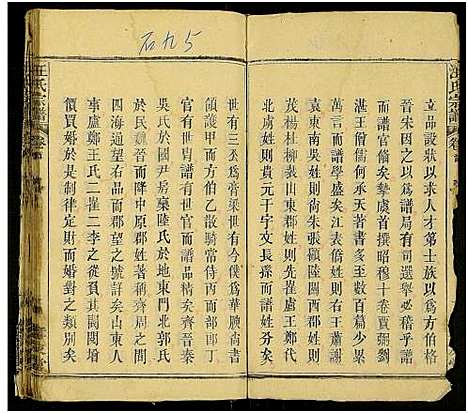 石九5
汪氏宗譜
立品設狀以求人才第士族以爲方伯格
晉宋因之以爲譜局有司選舉必稽乎譜
而譜官備矣摯虞首撰昭穆十卷賈弼劉
湛王僧儒何承天著書多至數百篇少累
十萬言譜學盛矣江表僑姓則右王蕭謝
袁東南吳姓則右朱張顧陸關西郡姓則右
北虜姓則貴元于宇文長孫而譜姓芬矣
世有三公爲膏粱世有今僕爲華腴尚書
領護而上爲甲而方伯乙散騎常侍丙而部郎丁
官有世胄譜有世官而譜品精矣齊晉秦
吳於國尹房於地東門北郭氏
於民魏晉而降中原郡姓著稱齊周之間
四海通望右尹品而郡望之號詳矣山東人
李盧鄭王氏二崔二李之從貿其閥閱
價買婚於是制律定財而婚對之類別矣